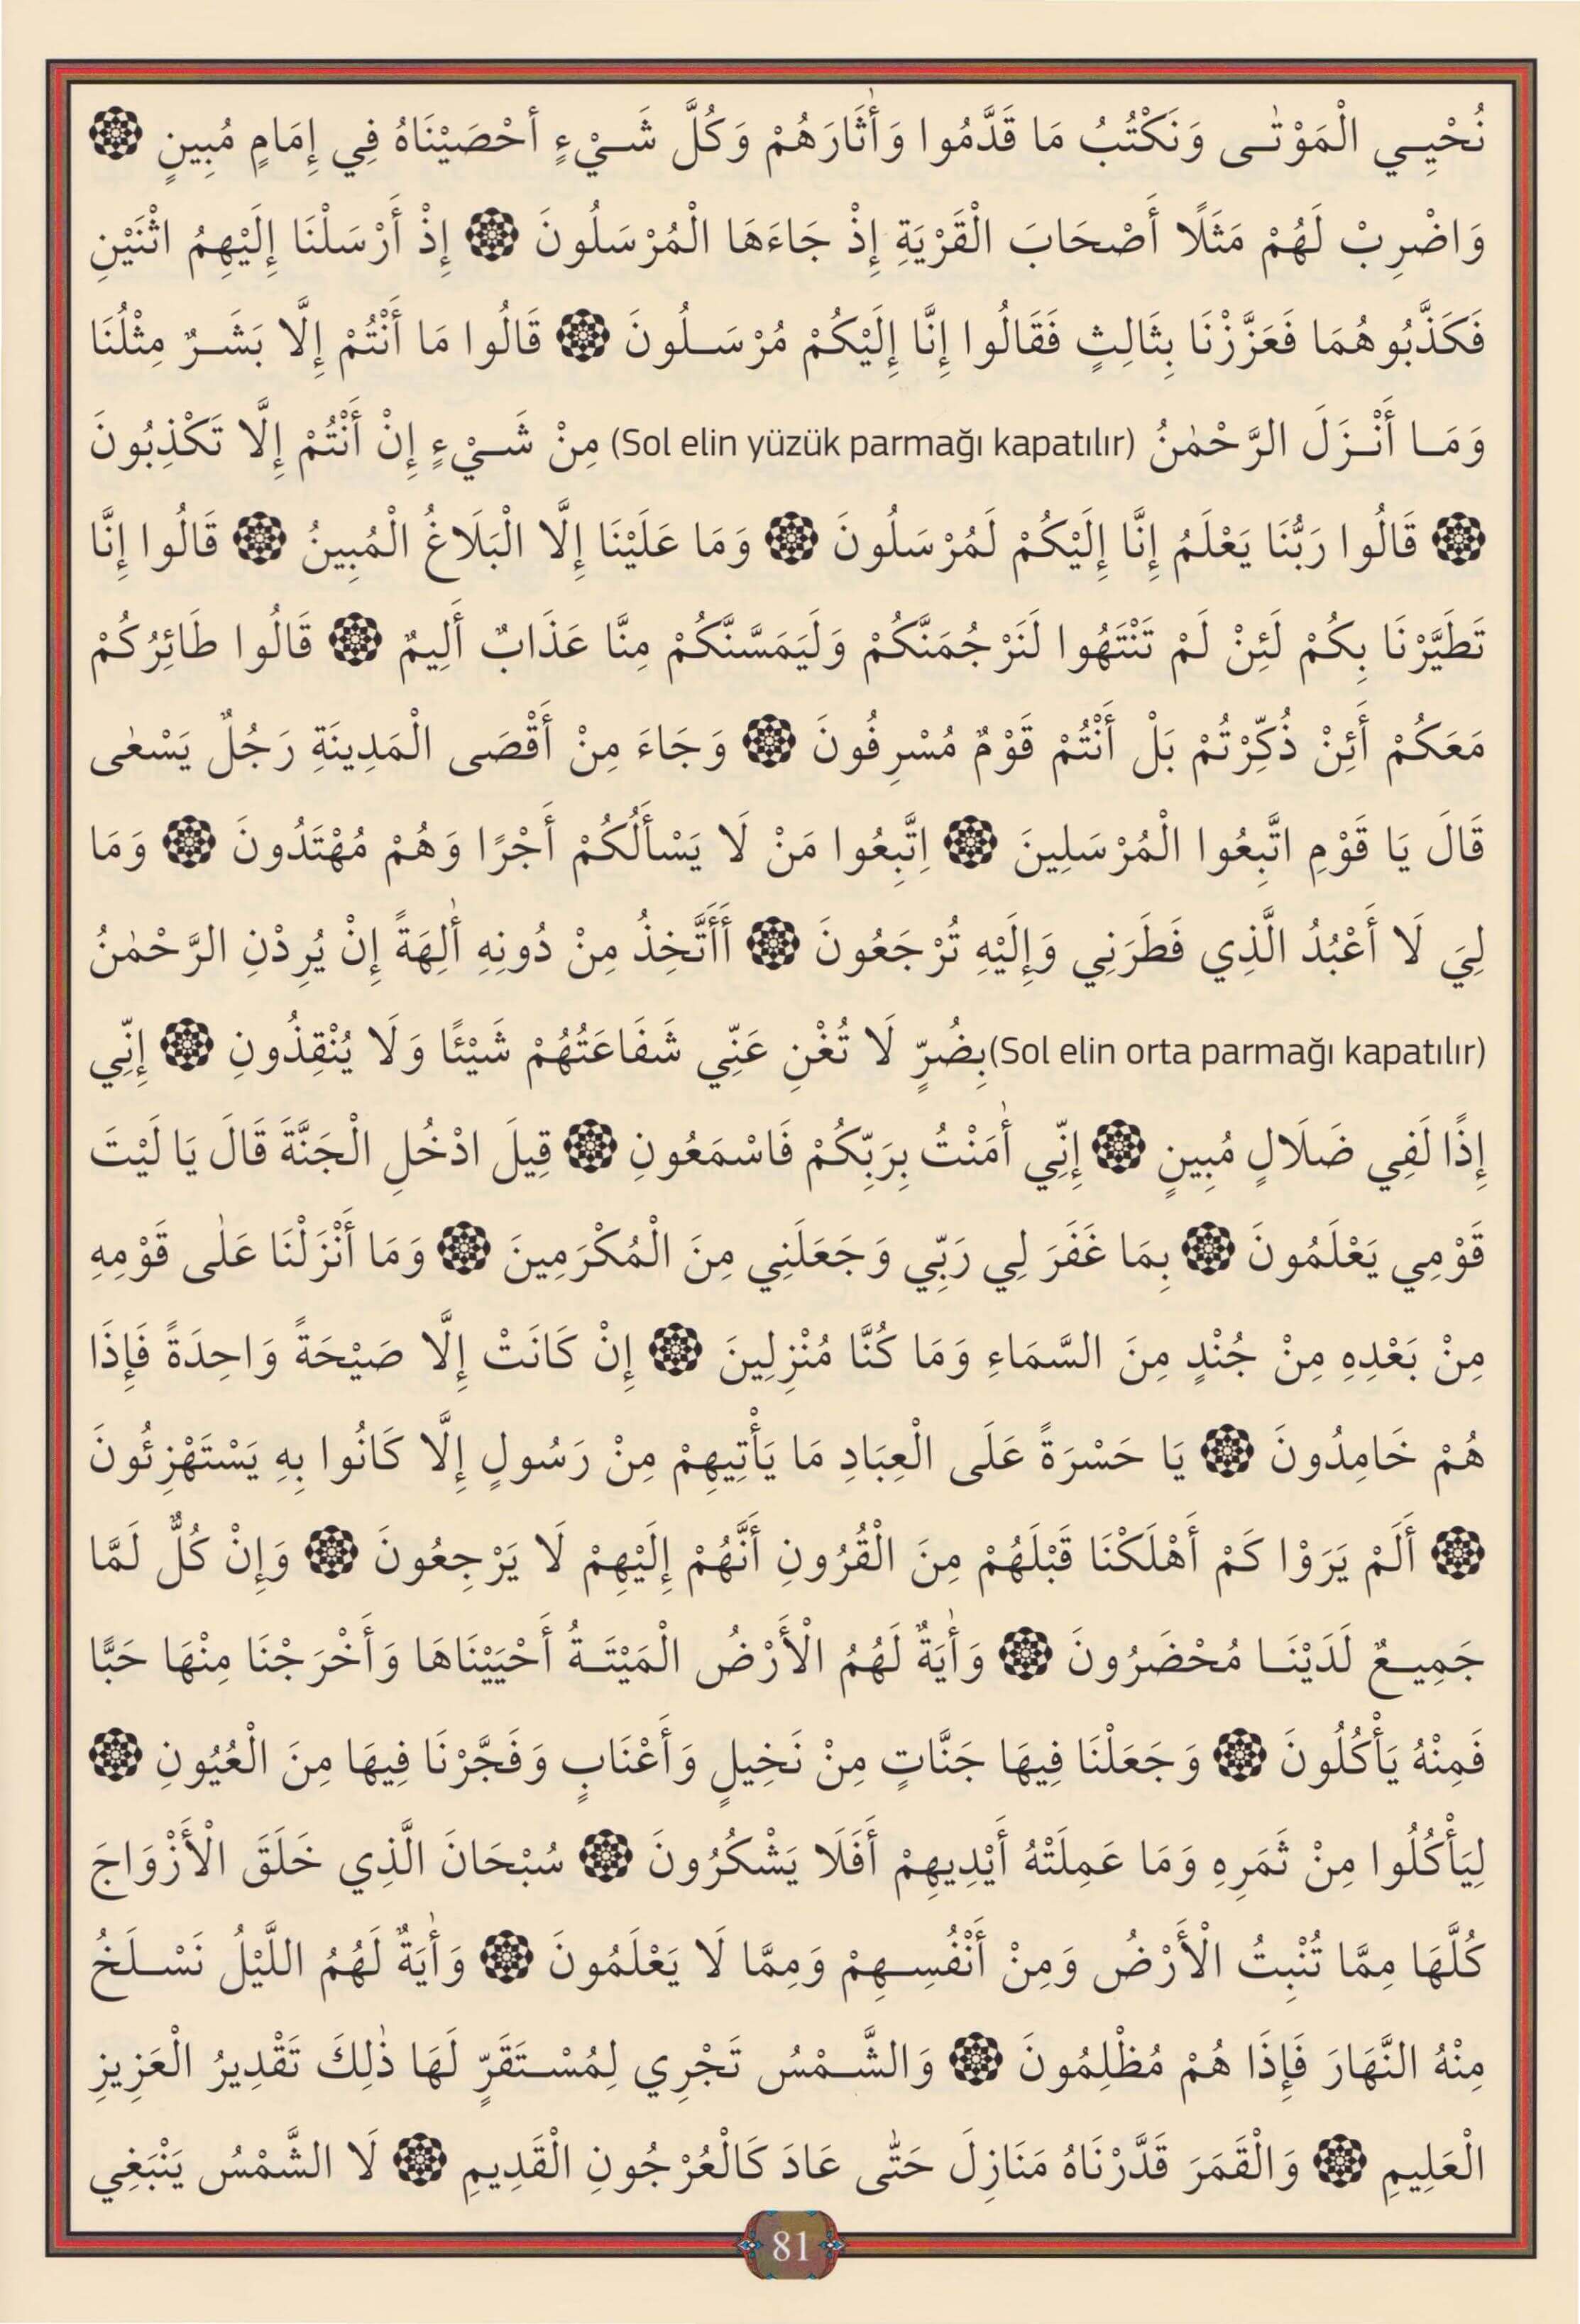 نُحْيِي الْمَوْتٰى وَنَكْتُبُ مَا قَدَّمُوا وَأٰثَارَهُمْ وَكُلَّ شَيْءٍ أحْصَيْنَاهُ فِي إِمَامٍ مُبِينٍ ۝
وَاضْرِبْ لَهُمْ مَثَلًا أَصْحَابَ الْقَرْيَةِ إِذْ جَاءَهَا الْمُرْسَلُونَ ۝ إِذْ أَرْسَلْنَا إِلَيْهِمُ اثْنَيْنِ
فَكَذَّبُوهُمَا فَعَزَّزْنَا بِثَالِثٍ فَقَالُوا إِنَّا إِلَيْكُمْ مُرْسَلُونَ ۝ قَالُوا مَا أَنْتُمْ إِلَّا بَشَرٌ مِثْلُنَا
وَمَا أَنْزَلَ الرَّحْمٰنُ (Sol elin yüzük parmağı kapatılır) مِنْ شَيْءٍ إِنْ أَنْتُمْ إِلَّا تَكْذِبُونَ
۝ قَالُوا رَبُّنَا يَعْلَمُ إِنَّا إِلَيْكُمْ لَمُرْسَلُونَ ۝ وَمَا عَلَيْنَا إِلَّا الْبَلَاغُ الْمُبِينُ ۝ قَالُوا إِنَّا
تَطَيَّرْنَا بِكُمْ لَئِنْ لَمْ تَنْتَهُوا لَنَرْجُمَنَّكُمْ وَلَيَمَسَّنَّكُمْ مِنَّا عَذَابٌ أَلِيمٌ ۝ قَالُوا طَائِرُكُمْ
مَعَكُمْ أَئِنْ ذُكِّرْتُمْ بَلْ أَنْتُمْ قَوْمٌ مُسْرِفُونَ ۝ وَجَاءَ مِنْ أَقْصَى الْمَدِينَةِ رَجُلٌ يَسْعٰى
قَالَ يَا قَوْمِ اتَّبِعُوا الْمُرْسَلِينَ ۝ اِتَّبِعُوا مَنْ لَا يَسْأَلُكُمْ أَجْرًا وَهُمْ مُهْتَدُونَ ۝ وَمَا
لِيَ لَا أَعْبُدُ الَّذِي فَطَرَنِي وَإِلَيْهِ تُرْجَعُونَ ۝ أَأَتَّخِذُ مِنْ دُونِهِ أٰلِهَةً إِنْ يُرِدْنِ الرَّحْمٰنُ
(Sol elin orta parmağı kapatılır)بِضُرٍّ لَا تُغْنِ عَنِّي شَفَاعَتُهُمْ شَيْئًا وَلَا يُنْقِذُونِ ۝ إِنِّي
إِذًا لَفِي ضَلَالٍ مُبِينٍ ۝ إِنِّي أٰمَنْتُ بِرَبِّكُمْ فَاسْمَعُونِ ۝ قِيلَ ادْخُلِ الْجَنَّةَ قَالَ يَا لَيْتَ
قَوْمِي يَعْلَمُونَ ۝ بِمَا غَفَرَ لِي رَبِّي وَجَعَلَنِي مِنَ الْمُكْرَمِينَ ۝ وَمَا أَنْزَلْنَا عَلٰى قَوْمِهِ
مِنْ بَعْدِهِ مِنْ جُنْدٍ مِنَ السَّمَاءِ وَمَا كُنَّا مُنْزِلِينَ ۝ إِنْ كَانَتْ إِلَّا صَيْحَةً وَاحِدَةً فَإِذَا
هُمْ خَامِدُونَ ۝ يَا حَسْرَةً عَلَى الْعِبَادِ مَا يَأْتِيهِمْ مِنْ رَسُولٍ إِلَّا كَانُوا بِهِ يَسْتَهْزِئُونَ
۝ أَلَمْ يَرَوْا كَمْ أَهْلَكْنَا قَبْلَهُمْ مِنَ الْقُرُونِ أَنَّهُمْ إِلَيْهِمْ لَا يَرْجِعُونَ ۝ وَإِنْ كُلٌّ لَمَّا
جَمِيعٌ لَدَيْنَا مُحْضَرُونَ ۝ وَأٰيَةٌ لَهُمُ الْأَرْضُ الْمَيْتَةُ أَحْيَيْنَاهَا وَأَخْرَجْنَا مِنْهَا حَبًّا
فَمِنْهُ يَأْكُلُونَ ۝ وَجَعَلْنَا فِيهَا جَنَّاتٍ مِنْ نَخِيلٍ وَأَعْنَابٍ وَفَجَّرْنَا فِيهَا مِنَ الْعُيُونِ ۝
لِيَأْكُلُوا مِنْ ثَمَرِهِ وَمَا عَمِلَتْهُ أَيْدِيهِمْ أَفَلَا يَشْكُرُونَ ۝ سُبْحَانَ الَّذِي خَلَقَ الْأَزْوَاجَ
كُلَّهَا مِمَّا تُنْبِتُ الْأَرْضُ وَمِنْ أَنْفُسِهِمْ وَمِمَّا لَا يَعْلَمُونَ ۝ وَأٰيَةٌ لَهُمُ اللَّيْلُ نَسْلَخُ
مِنْهُ النَّهَارَ فَإِذَا هُمْ مُظْلِمُونَ ۝ وَالشَّمْسُ تَجْرِي لِمُسْتَقَرٍّ لَهَا ذٰلِكَ تَقْدِيرُ الْعَزِيزِ
الْعَلِيمِ ۝ وَالْقَمَرَ قَدَّرْنَاهُ مَنَازِلَ حَتّٰى عَادَ كَالْعُرْجُونِ الْقَدِيمِ ۝ لَا الشَّمْسُ يَنْبَغِي
81